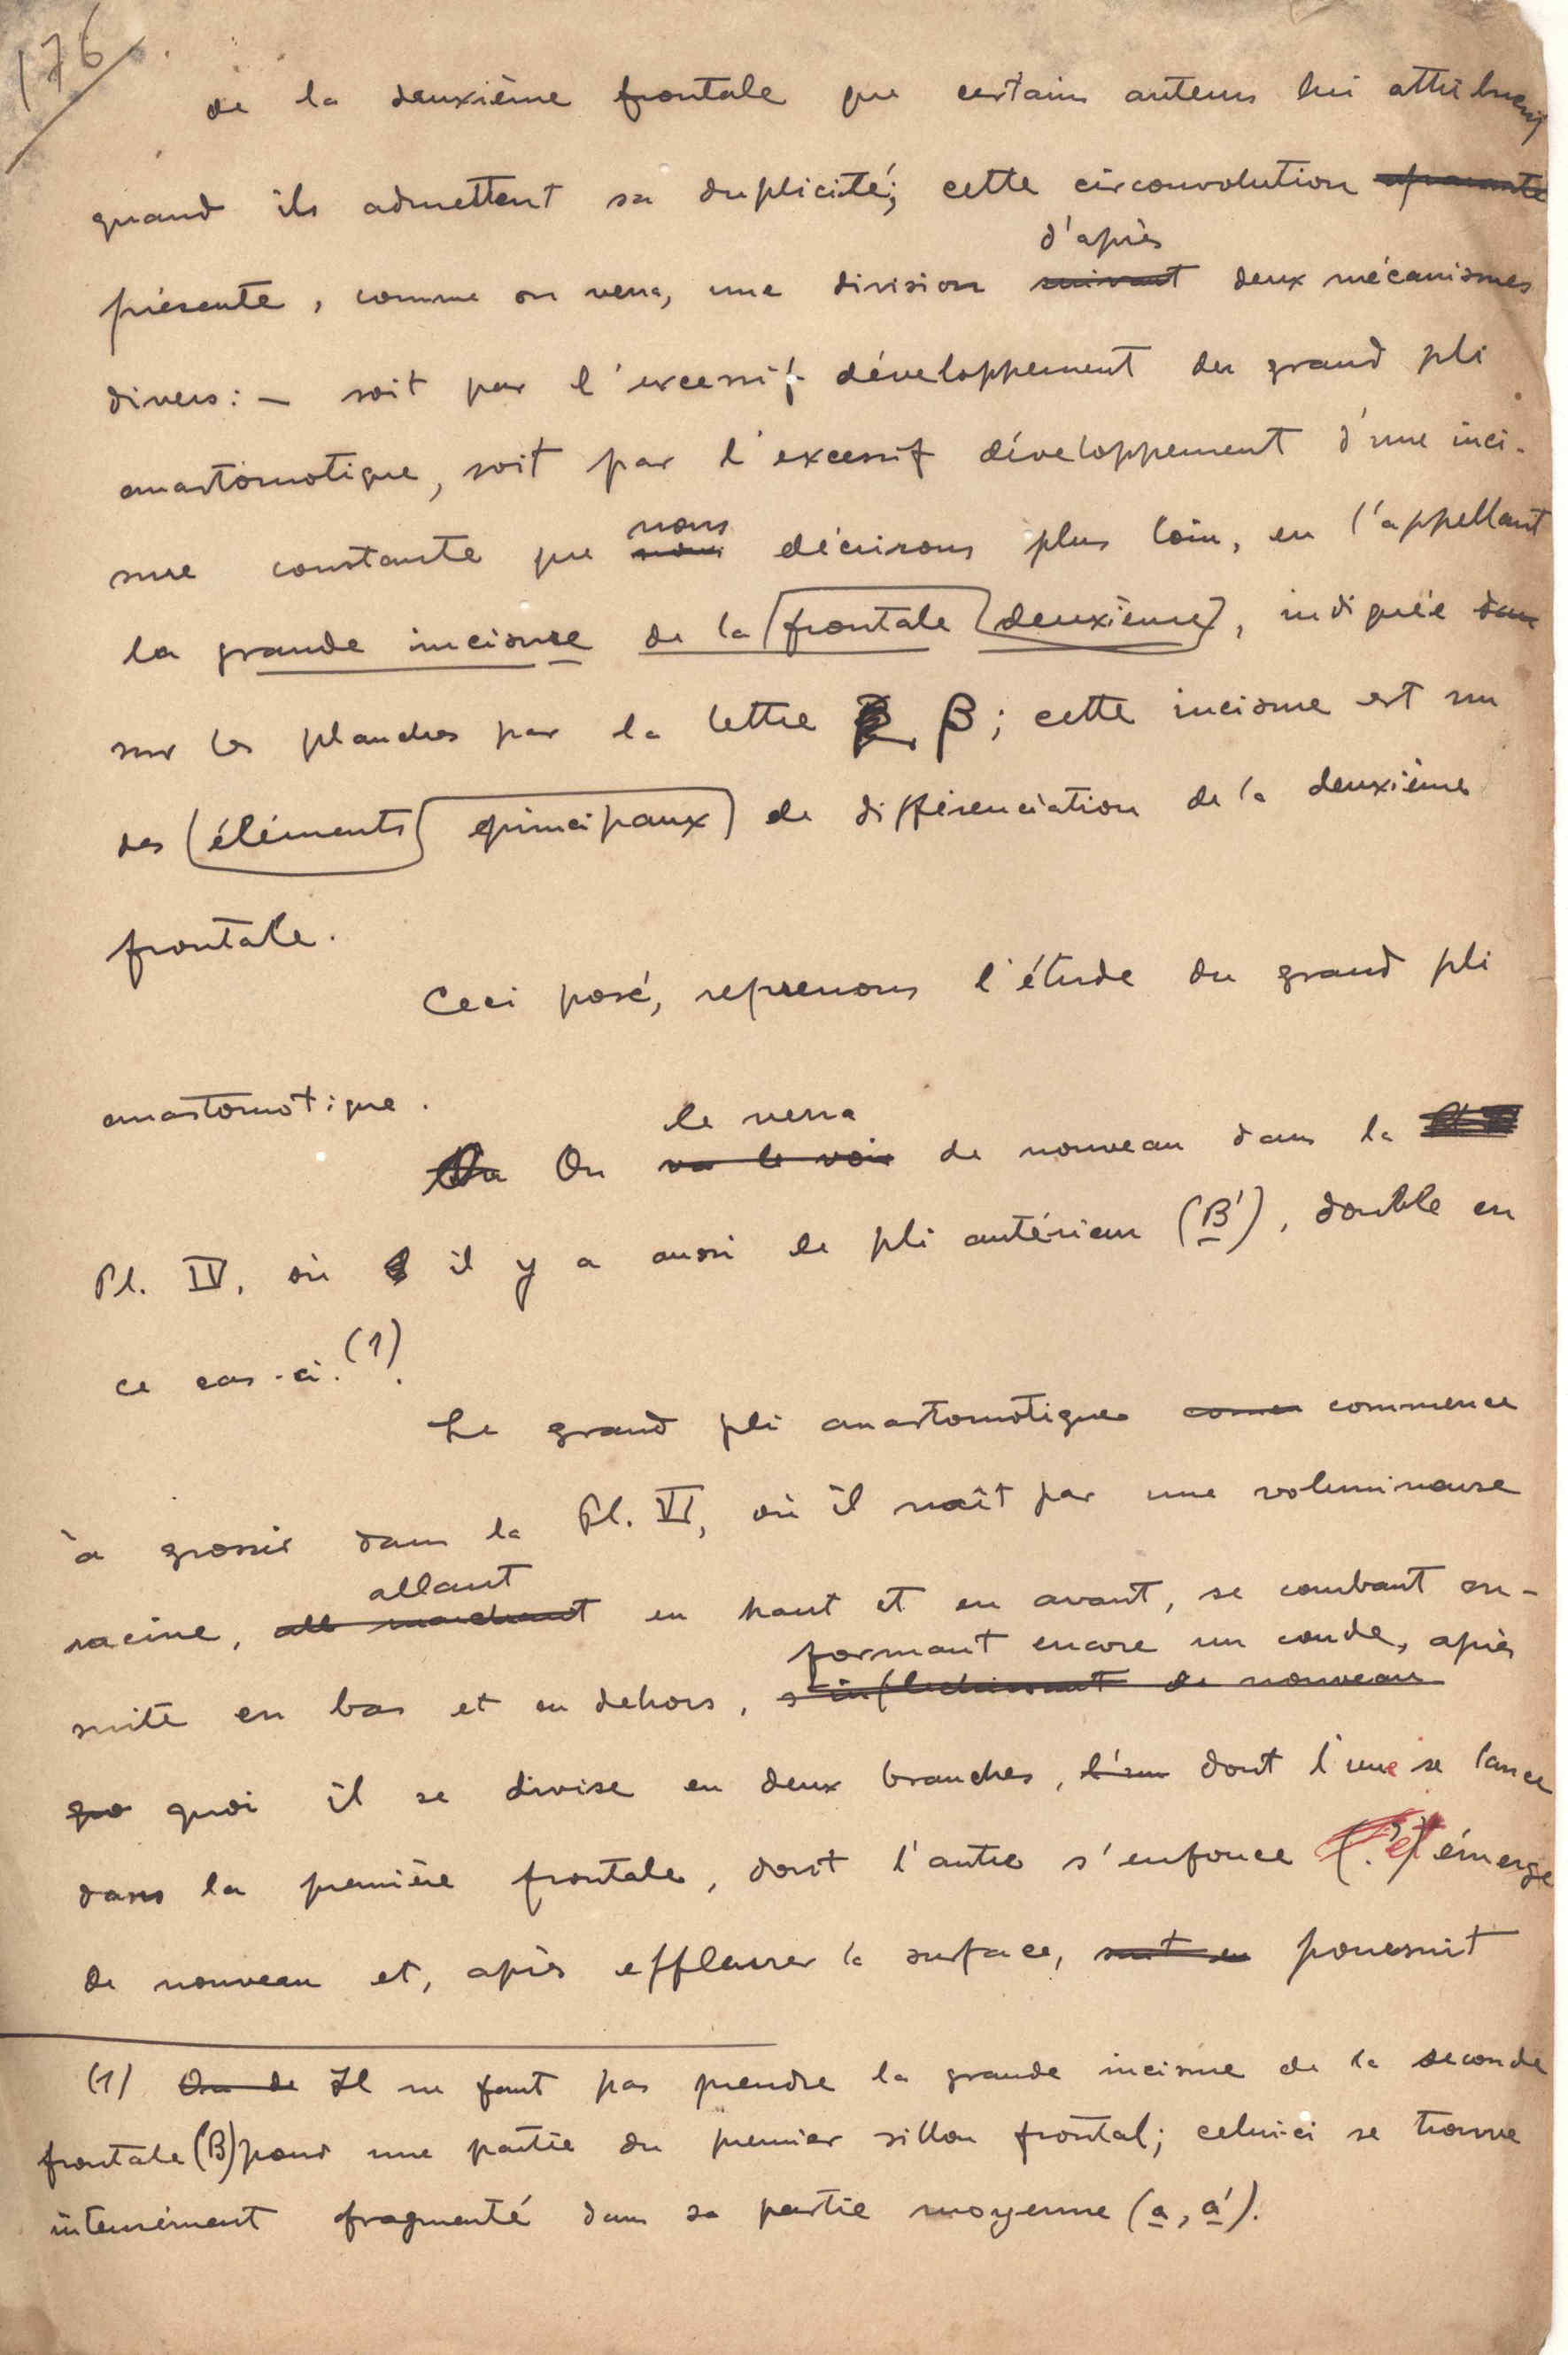 176
de la deuxième frontale que certains auteurs lui attribuent
quand ils admettent sa duplicité; cette circonvolution
d'après
présente, comme on verra, une division suivant deux mécanismes
divers: — soit par l'excessif développement du grand pli
anastomotique, soit par l'excessif développement d'une inci-
nous
sure constante que nous décrirons plus loin, en l'appellant
la grande incisure de la frontale deuxième, indiquée dans
sur les planches par la lettre β; cette incisure est un
des éléments principaux de différenciation de la deuxième
frontale.
Ceci posé, reprenons l'étude du grand pli
anastomotique.
le verra
On On va le voir de nouveau dans la
Pl. IV, où il y a aussi le pli antérieur (B'), double en
ce cas-ci.(1).
Le grand pli anastomotique commence
à grossir dans la Pl. VI, où il naît par une volumineuse
allant
racine, all marchant en haut et en avant, se courbant en-
formant encore un coude, après
suite en bas et en dehors, s'infléchissant de nouveau
quo quoi il se divise en deux branches, l'un dont l'une se lance
dans la première frontale, dont l'autre s'enfonce (?) et émerge
de nouveau et, après effleurer la surface, suit en poursuit
(1) On de Il ne faut pas prendre la grande incisure de la seconde
frontale (β) pour une partie du premier sillon frontal; celui-ci se trouve
intensément fragmenté dans sa partie moyenne (a, a').